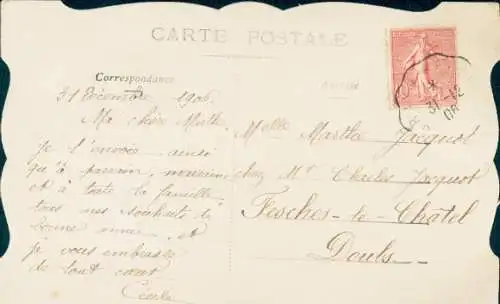 CARTE POSTALE
Correspondance
31 Décembre 1906
Ma chère Marthe,
Je t'envois ainsi
qu'à parrain, marraine
et à toute la famille
tous mes souhaits de
bonne année et
je vous embrasse
de tout cœur
Cécile
Melle Marthe Jacquot
chez Mr Charles Jacquot
Fesches-le-Châtel
Doubs
31-12
06